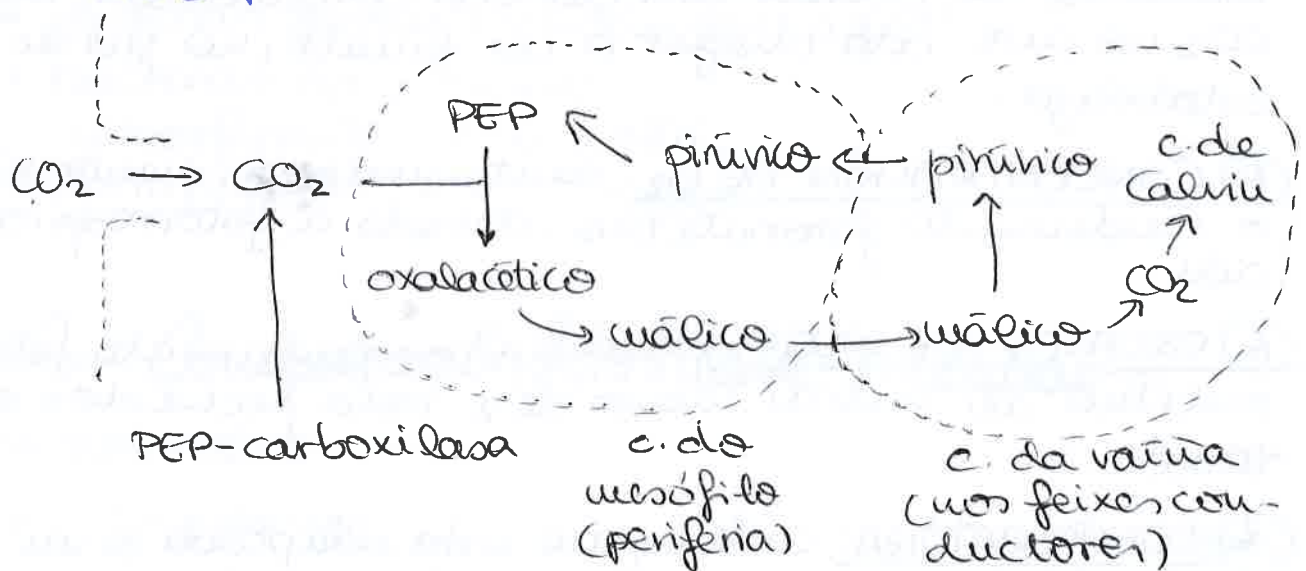 PEP
pirúvico ← pirúvico
c. de
Calvin
CO₂ → CO₂
oxalacético
CO₂
málico → málico
PEP-carboxilasa
c. do
mesófilo
(periferia)
c. da vaíña
(nos feixes con-
ductores)